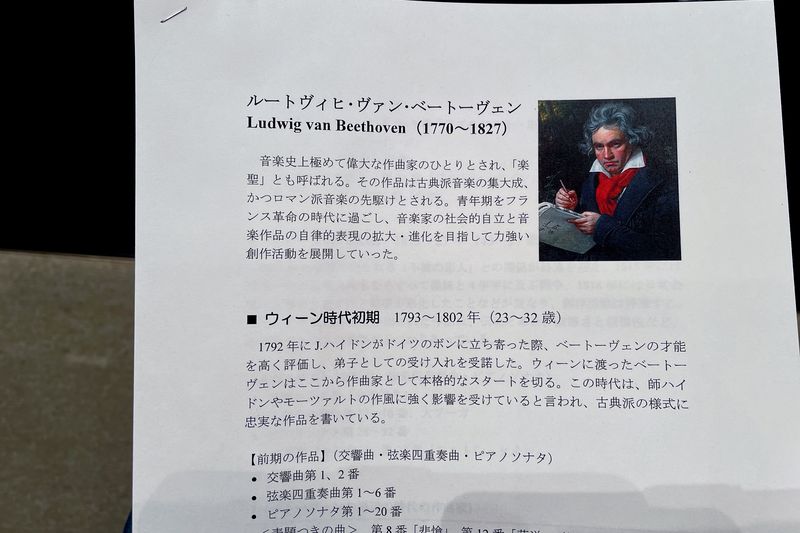 ルートヴィヒ・ヴァン・ベートーヴェン
Ludwig van Beethoven（1770～1827）
音楽史上極めて偉大な作曲家のひとりとされ、「楽
聖」とも呼ばれる。その作品は古典派音楽の集大成、
かつロマン派音楽の先駆けとされる。青年期をフラ
ンス革命の時代に過ごし、音楽家の社会的自立と音
楽作品の自律的表現の拡大・進化を目指して力強い
創作活動を展開していった。
■ ウィーン時代初期 1793～1802 年（23～32 歳）
1792 年に J.ハイドンがドイツのボンに立ち寄った際、ベートーヴェンの才能
を高く評価し、弟子としての受け入れを受諾した。ウィーンに渡ったベートー
ヴェンはここから作曲家として本格的なスタートを切る。この時代は、師ハイ
ドンやモーツァルトの作風に強く影響を受けていると言われ、古典派の様式に
忠実な作品を書いている。
【前期の作品】（交響曲・弦楽四重奏曲・ピアノソナタ）
• 交響曲第 1、2 番
• 弦楽四重奏曲第 1～6 番
• ピアノソナタ第 1～20 番
＜表題つきの曲＞ 第 8 番「悲愴」、第 12 番